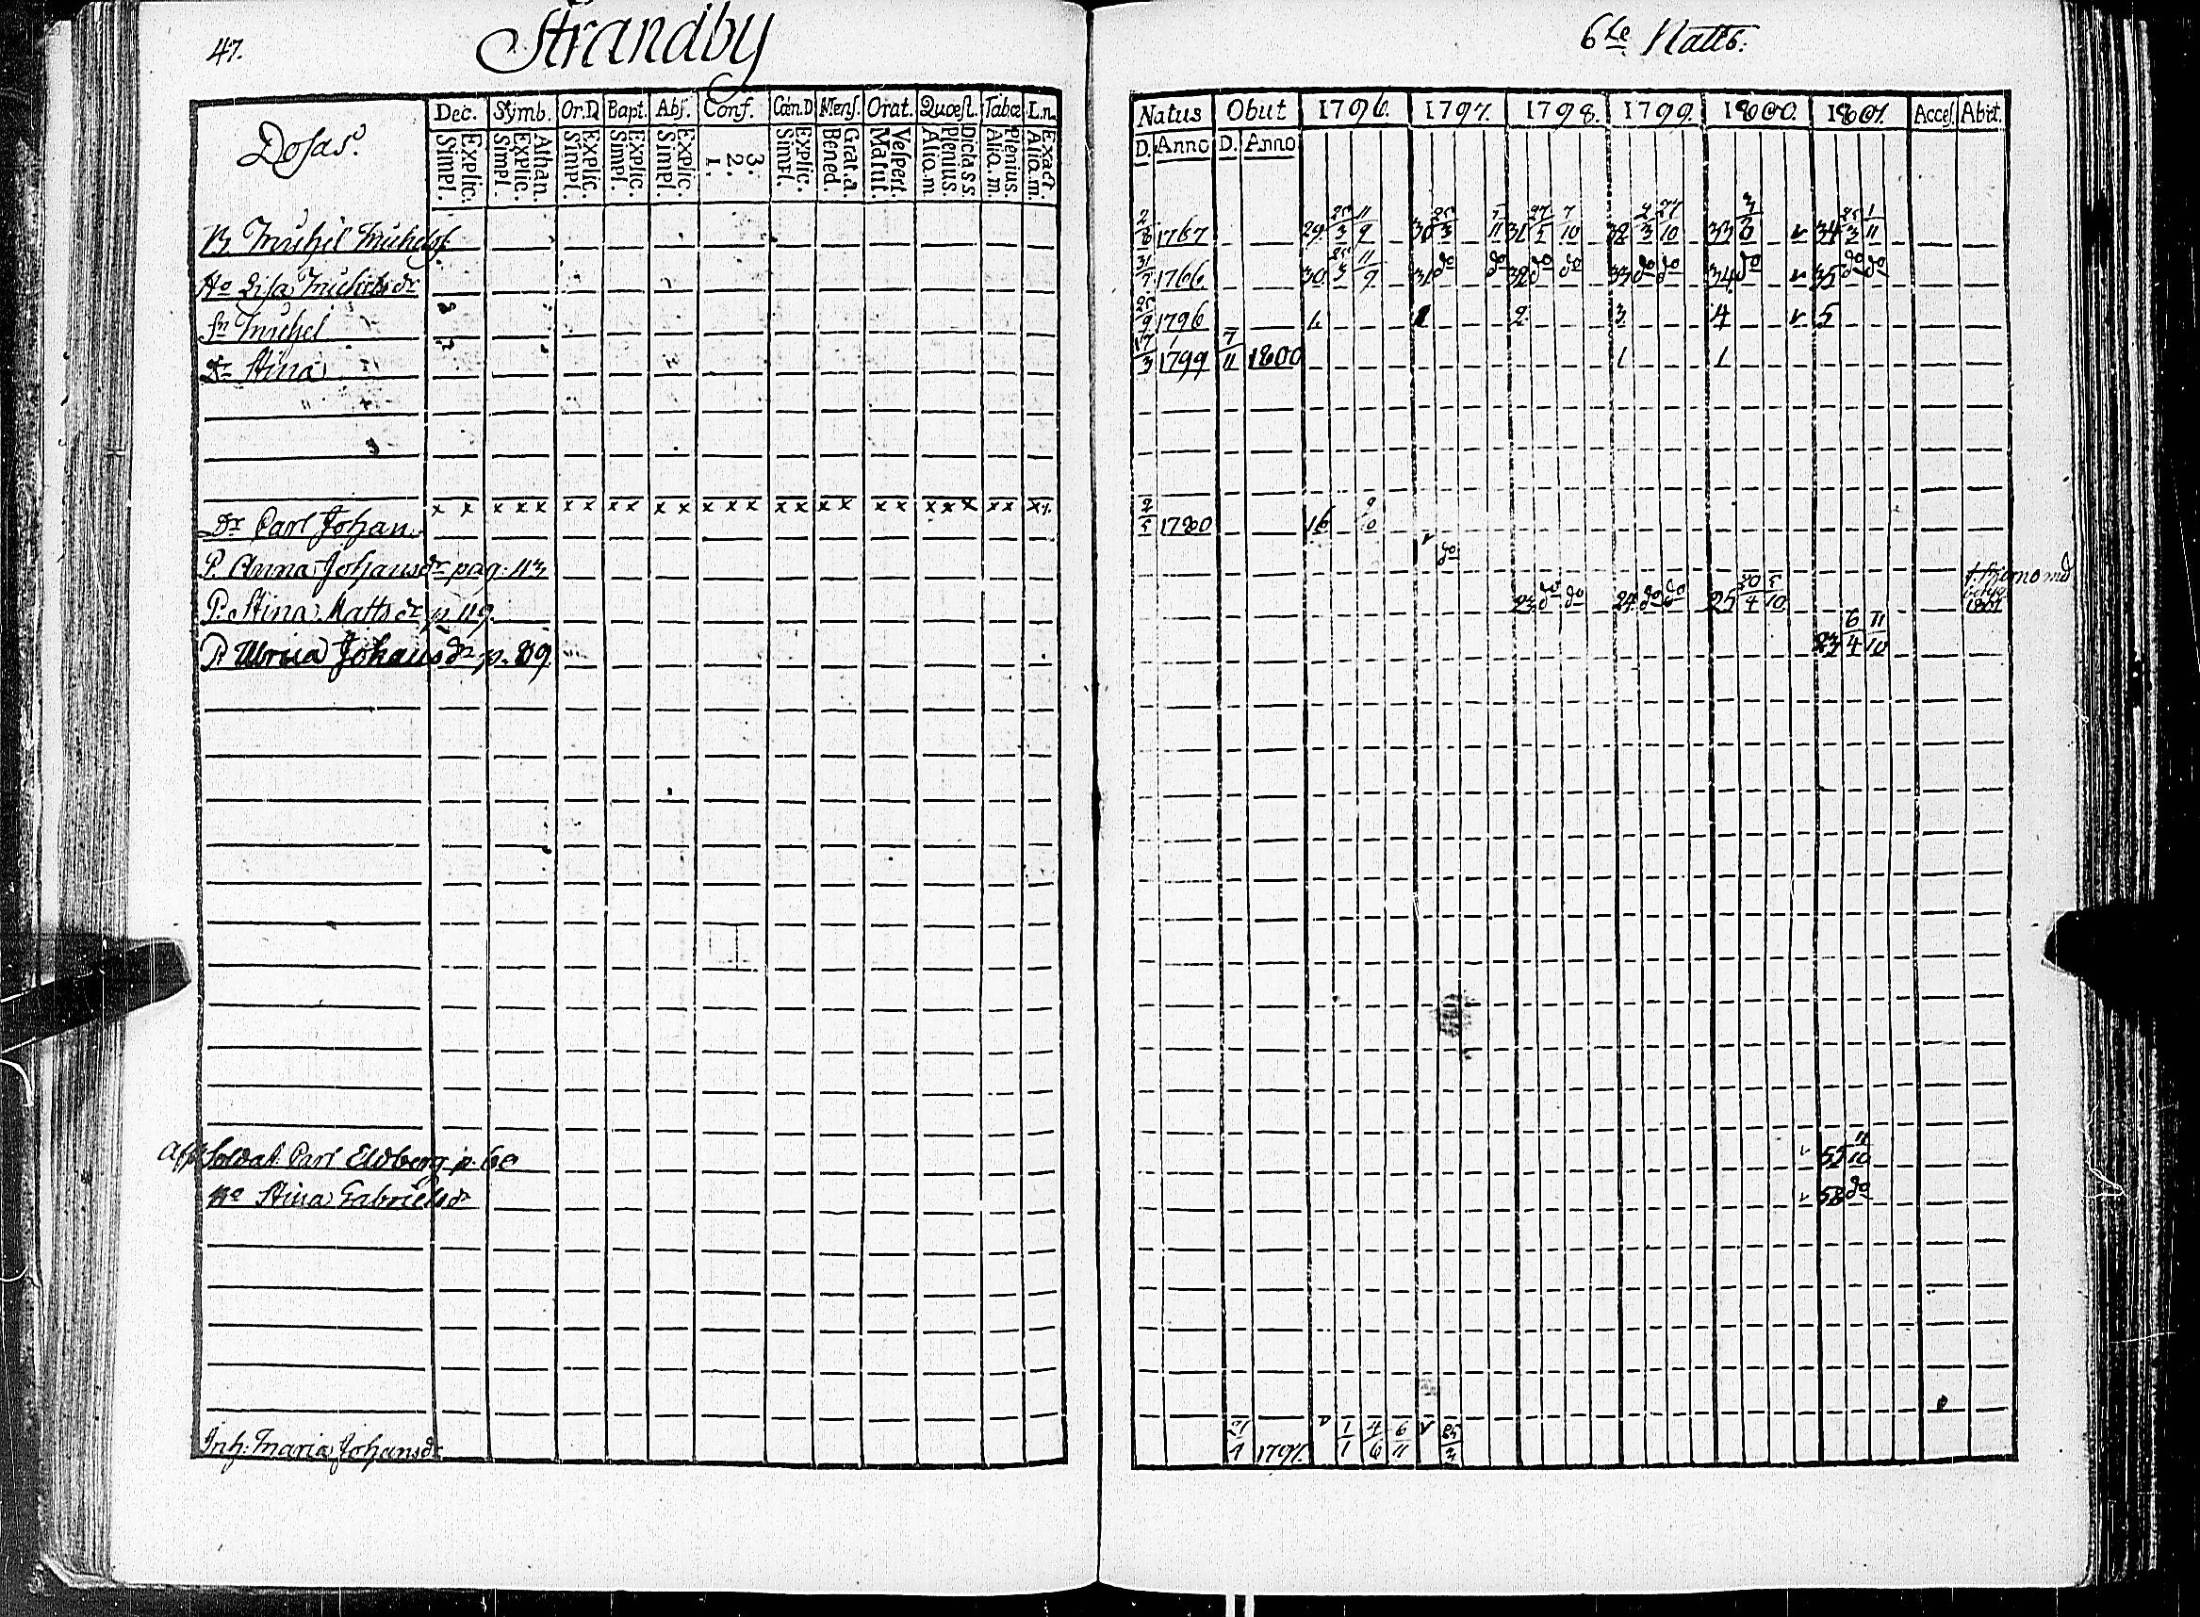 47.
Strandby
Dosas.
Dec. Symb. Or.D Bapt. Abs. Conf. Cœn.D Mens. Orat. Quœst. Tabœ L.n.
Explic. Simpl. Athan. Explic. Simpl. Explic. Simpl. Explic. Simpl. Explic. Simpl. 3. 2. 1. Explic. Simpl. Grat.a. Bened. Vespert. Matut. Dicta s.s. Plenius. Aliq.m. Plenius. Aliq.m. Exact. Aliq.m.
B. Michel Michelss.
Ho Lisa Michelsdr
Sn Michel
Dr Stina
x x x x x x x x x x x x x x x x x x x x x x x x x x x
Dr Carl Johan
P. Anna Johansdr pag. 43
P. Stina Mattsdr p. 119.
P. Ulrica Johansdr p. 89
Afsk. Soldat Carl Eldberg p. 60
Ho Stina Gabrielsdr
Inh: Maria Johansdr
6te Natts:
Natus Obiit 1796. 1797. 1798. 1799. 1800. 1801. Acces. Abiit.
D. Anno D. Anno
2/6 1767 29 25/3 11/9 30 25/3 5/11 31 27/5 7/10 32 2/3 27/10 33 v 34 25/3 1/11
31/7 1766 30 25/3 11/9 31 do do 32 do do 33 do do 34 do v 35 do do
25/9 1796 1. 1 2 3 4 v 5
17/3 1799 7/11 1800 1 1
2/5 1780 16
v do
23 do do 24 do do 25 20/4 5/10
1801
23 6/4 11/10
v 55 11/10
v 58 do
1797. v 1/1 4/6 6/11 v 25/3